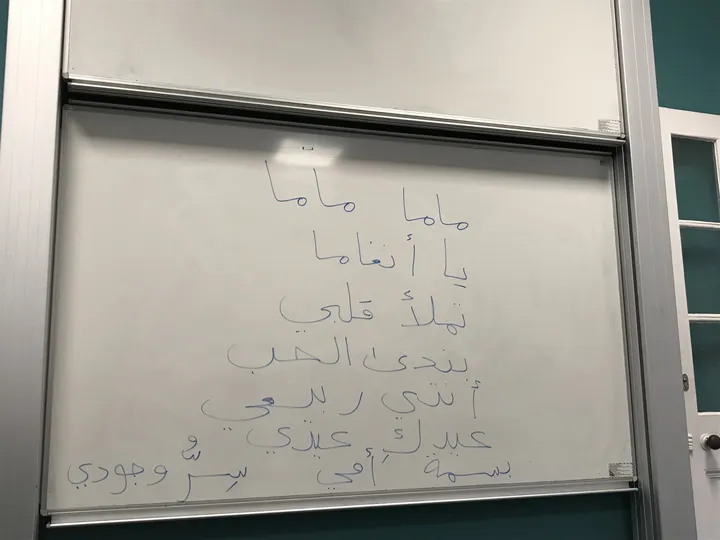 ماما ماما ماما
يا أنغاما
تملأ قلبي
بندى الحب
أنتي ربيعي
عيدكِ عيدي
بسمة أمي سِرُّ وجودي